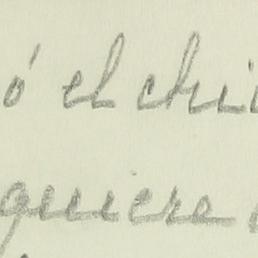 ó el chi
quiera